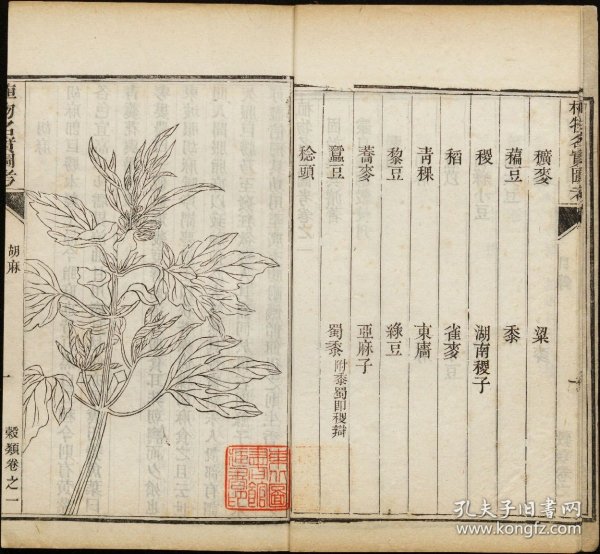 植物名實圖考
穬麥　粱
藊豆　黍
稷　湖南稷子
稻　雀麥
青稞　東廧
黎豆　綠豆
蕎麥　亞麻子
蠶豆　蜀黍附黍蜀即稷辯
稔頭
植物名實圖考　胡麻　一　穀類卷之一
孔夫子旧书网
www.kongfz.com